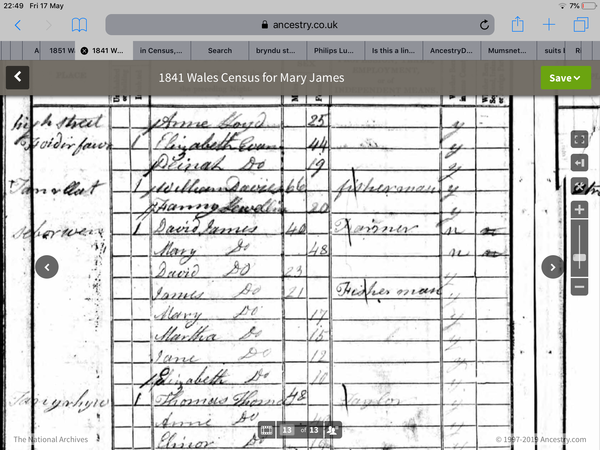 22:49 Fri 17 May 7%
ancestry.co.uk
A 1851 W 1841 W... in Census,... Search bryndu st... Philips Lu... Is this a lin... AncestryD... Mumsnet... suits R
1841 Wales Census for Mary James
Save
street Anne Lloyd 25 y
1 Elizabeth Evan 44 y
Dinah Do 19 y
1 William Davies 66 fisherman y
Fanny 20 y
1 David James 40 Farmer n
Mary Do 48 n
David DO 23 y
James Do 21 Fisherman y
Mary Do 17 y
Martha Do 15 y
Jane Do 12 y
Elizabeth Do 10 y
1 Thomas Thomas 48 Taylor y
Anne Do y
Elinor Do
13 of 13
The National Archives
© 1997-2019 Ancestry.com